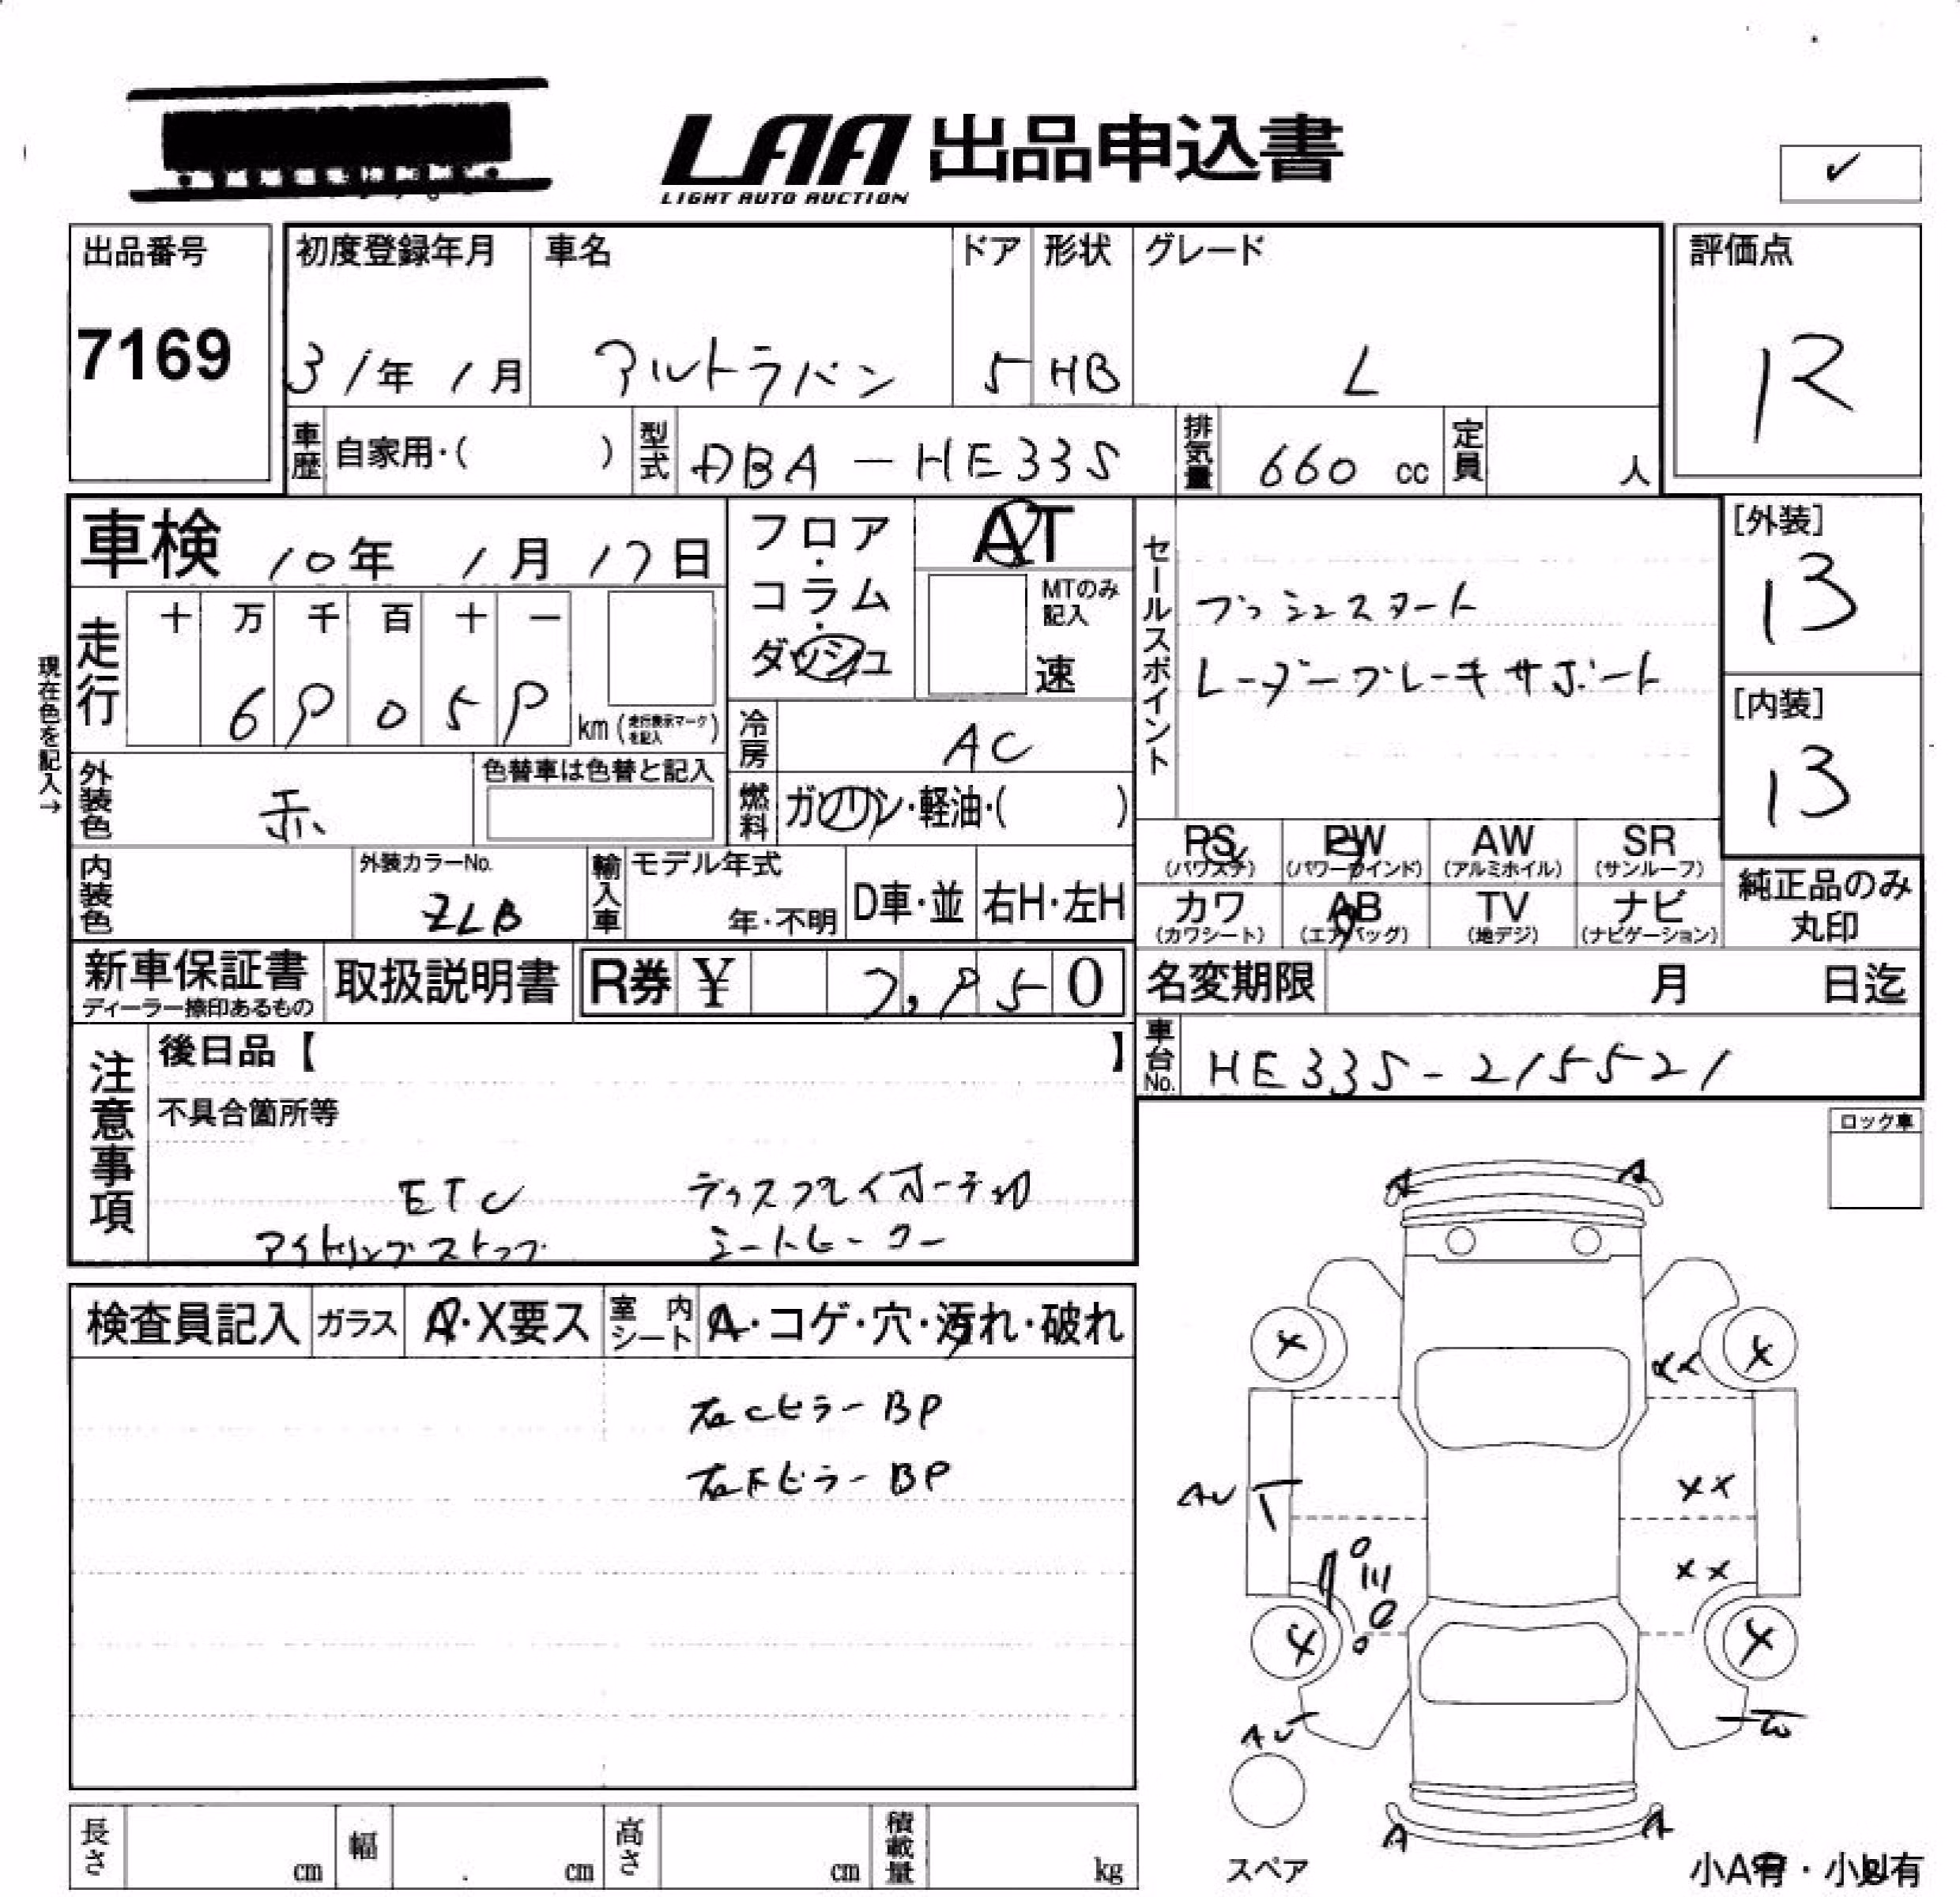 LAA 出品申込書
LIGHT AUTO AUCTION
✓
出品番号
7169
初度登録年月
31年 1月
車名
アルトラパン
ドア
5
形状
HB
グレード
L
評価点
R
車歴 自家用・( )
型式 DBA-HE33S
排気量 660 cc
定員 人
車検 10年 1月 17日
フロア・コラム・ダッシュ
AT
MTのみ記入
速
走行
十 万 千 百 十 一
6 9 0 5 9
km (走行表示マークを記入)
現在色を記入→
冷房 AC
燃料 ガソリン・軽油・( )
セールスポイント
プッシュスタート
レーダーブレーキサポート
[外装]
B
[内装]
B
外装色 赤
色替車は色替と記入
内装色
外装カラーNo.
ZLB
輸入車
モデル年式
年・不明
D車・並
右H・左H
PS (パワステ)
PW (パワーウインド)
AW (アルミホイル)
SR (サンルーフ)
カワ (カワシート)
AB (エアバッグ)
TV (地デジ)
ナビ (ナビゲーション)
純正品のみ丸印
新車保証書
ディーラー捺印あるもの
取扱説明書
R券 ¥ 7,950
名変期限 月 日迄
車台No. HE33S-215521
注意事項
後日品【 】
不具合箇所等
ETC ディスプレイオーディオ
アイドリングストップ シートヒーター
ロック車
検査員記入 ガラス A・X要ス 室内シート A・コゲ・穴・汚れ・破れ
右Cピラー BP
右Fピラー BP
A A
X X
XX
AU XX
XX
X X
AU W
A A
スペア
長さ cm 幅 cm 高さ cm 積載量 kg
小A有・小U有